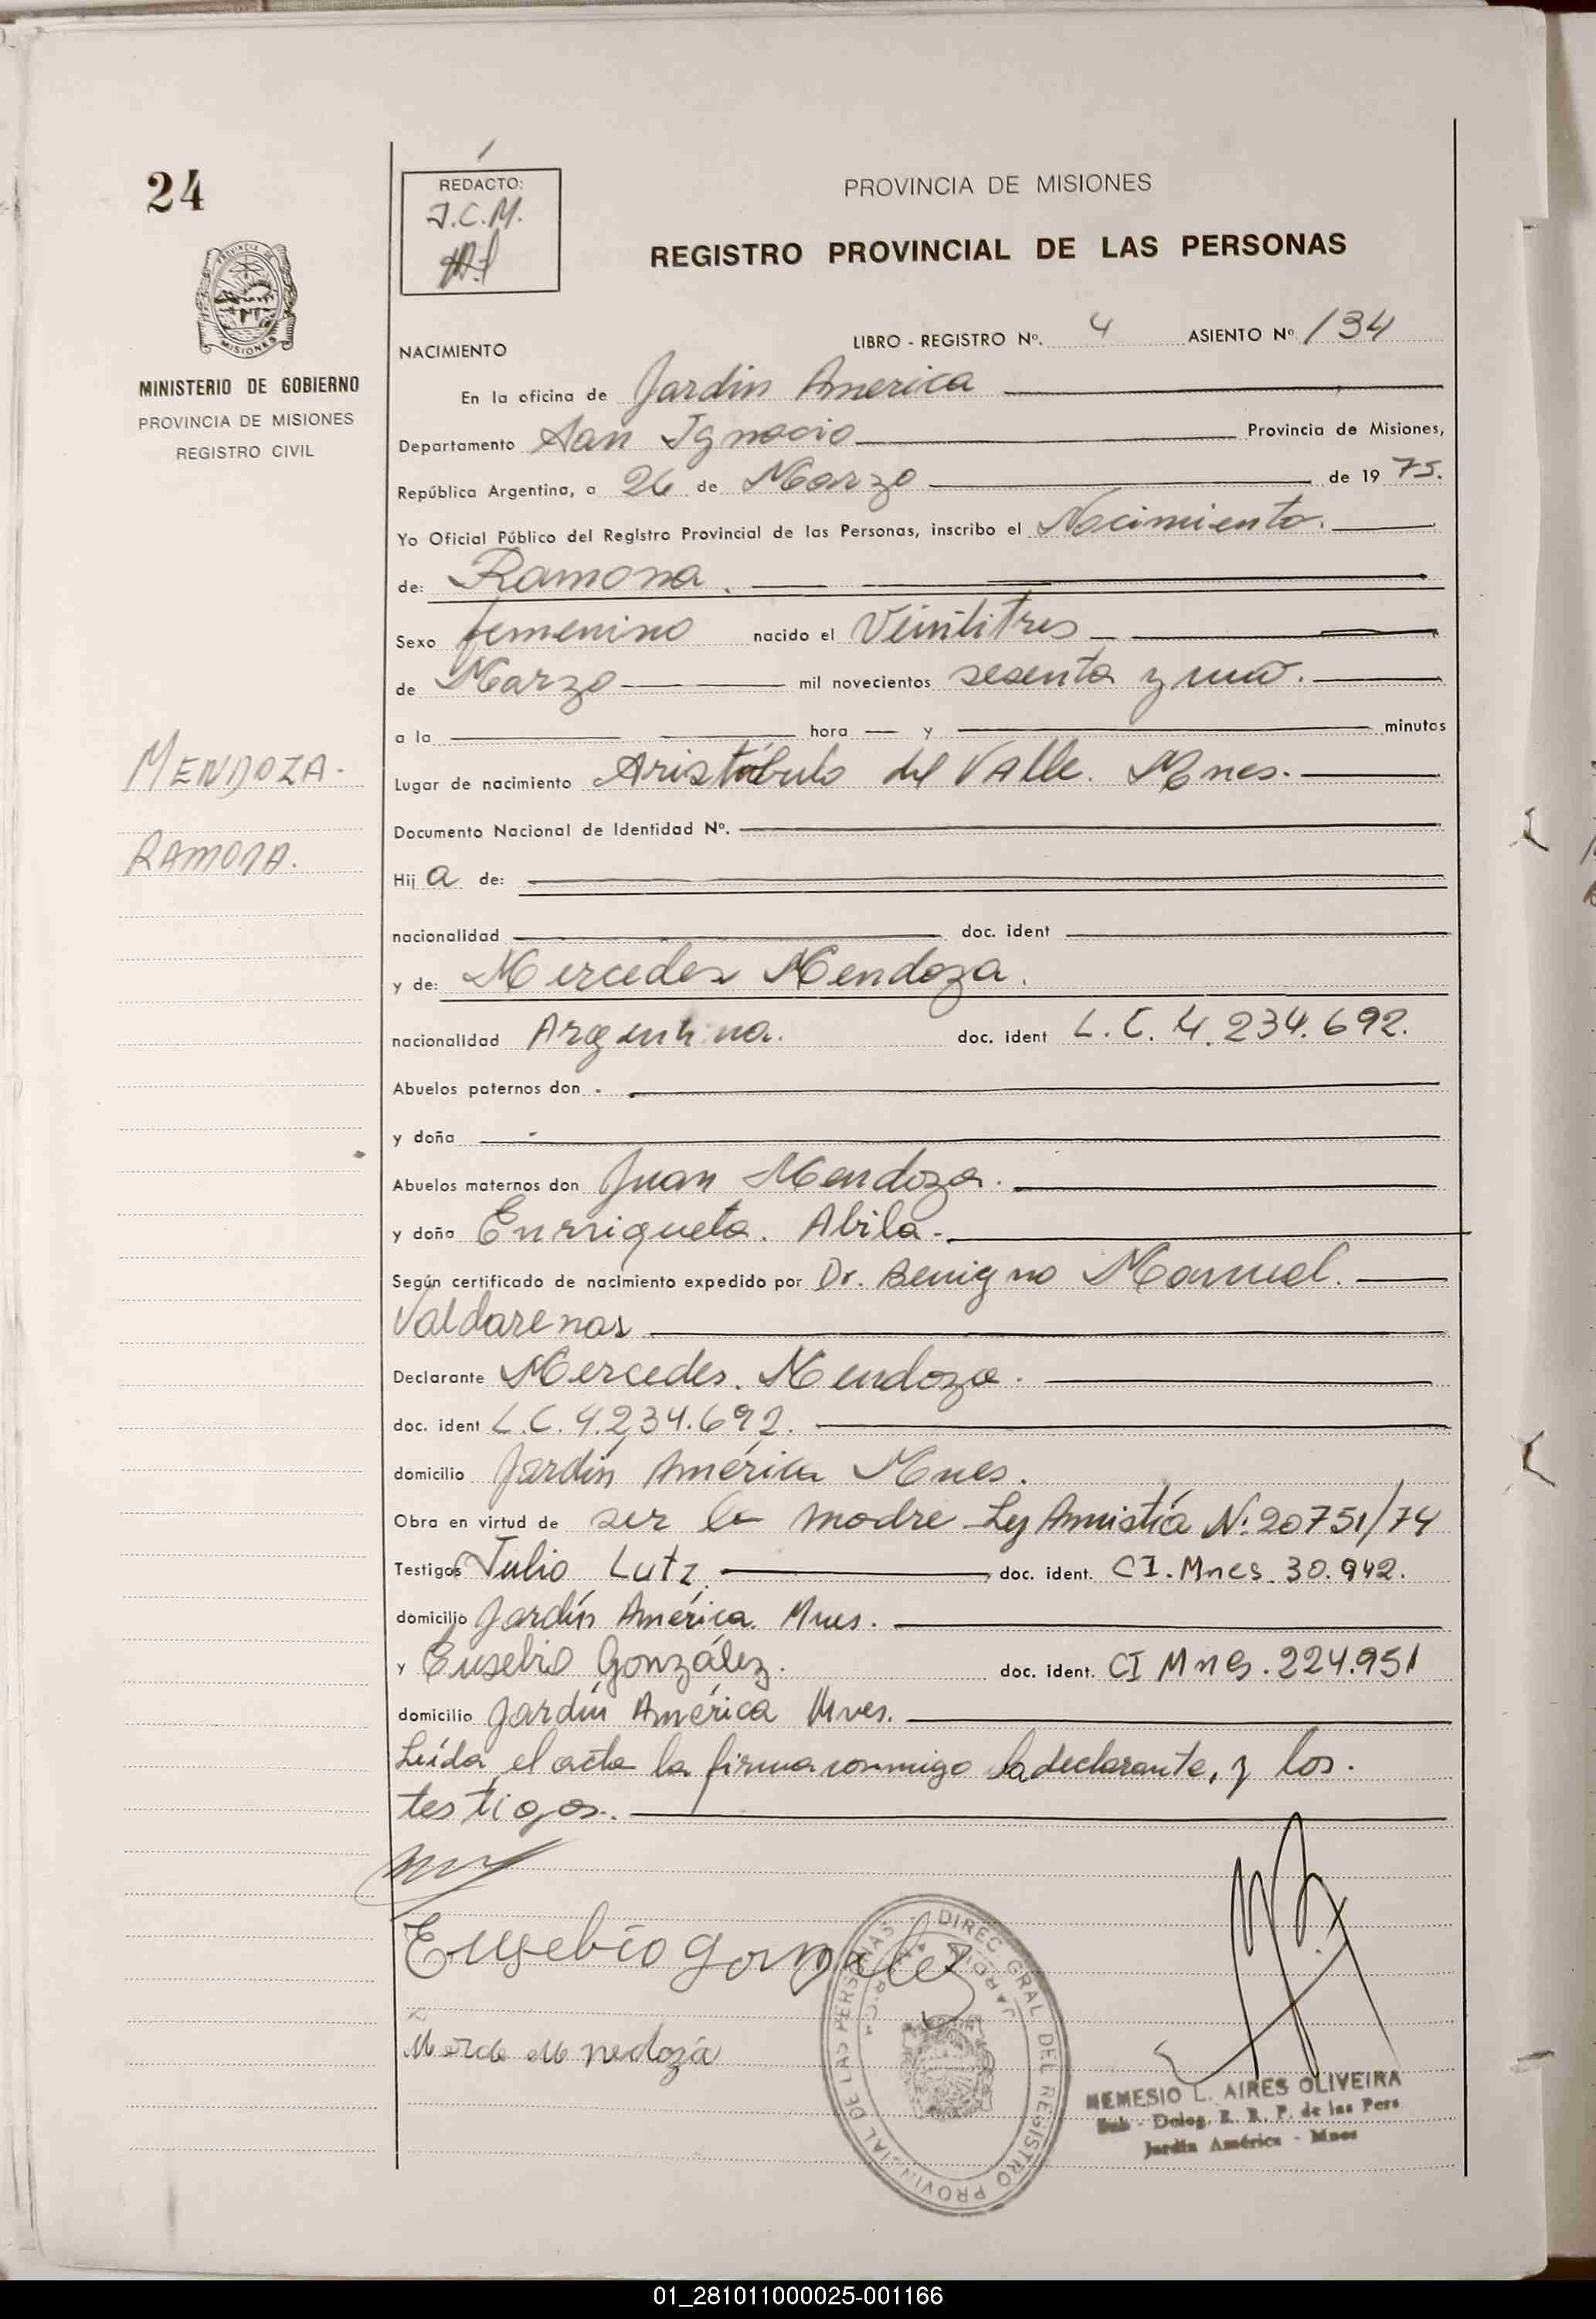 24
REDACTO:
J.C.M.
PROVINCIA DE MISIONES
REGISTRO PROVINCIAL DE LAS PERSONAS
PROVINCIA DE
MISIONES
MINISTERIO DE GOBIERNO
PROVINCIA DE MISIONES
REGISTRO CIVIL
NACIMIENTO
LIBRO - REGISTRO Nº. 4 ASIENTO Nº 134
En la oficina de Jardin America
Departamento San Ignacio Provincia de Misiones,
República Argentina, a 26 de Marzo de 19 75.
Yo Oficial Público del Registro Provincial de las Personas, inscribo el Nacimiento.
de: Ramona.
Sexo femenino nacido el Veintitres
de Marzo mil novecientos sesenta y uno.
a la hora y minutos
MENDOZA.
RAMONA.
Lugar de nacimiento Aristóbulo del Valle. Mnes.
Documento Nacional de Identidad Nº.
Hij a de:
nacionalidad doc. ident
y de: Mercedes Mendoza.
nacionalidad Argentina. doc. ident L.C. 4.234.692.
Abuelos paternos don
y doña
Abuelos maternos don Juan Mendoza.
y doña Enrriqueta. Abila.
Según certificado de nacimiento expedido por Dr. Benigno Manuel.
Valdarenas
Declarante Mercedes. Mendoza.
doc. ident L.C. 4.234.692.
domicilio Jardín América Mnes.
Obra en virtud de ser la madre Ley Amistía N: 20751/74
Testigos Julio Lutz. doc. ident. CI. Mnes. 30.942.
domicilio Jardín América. Mnes.
y Eusebio González. doc. ident. CI Mnes. 224.951
domicilio Jardín América Mnes.
Leída el acta la firma conmigo la declarante, y los.
testigos.
Eusebio Gonzalez
DIREC. GRAL. DEL REGISTRO PROVINCIAL DE LAS PERSONAS
JARDIN AMERICA
NEMESIO L. AIRES OLIVEIRA
Sub - Deleg. R. R. P. de las Pers
Jardín América - Mnes
01_281011000025-001166